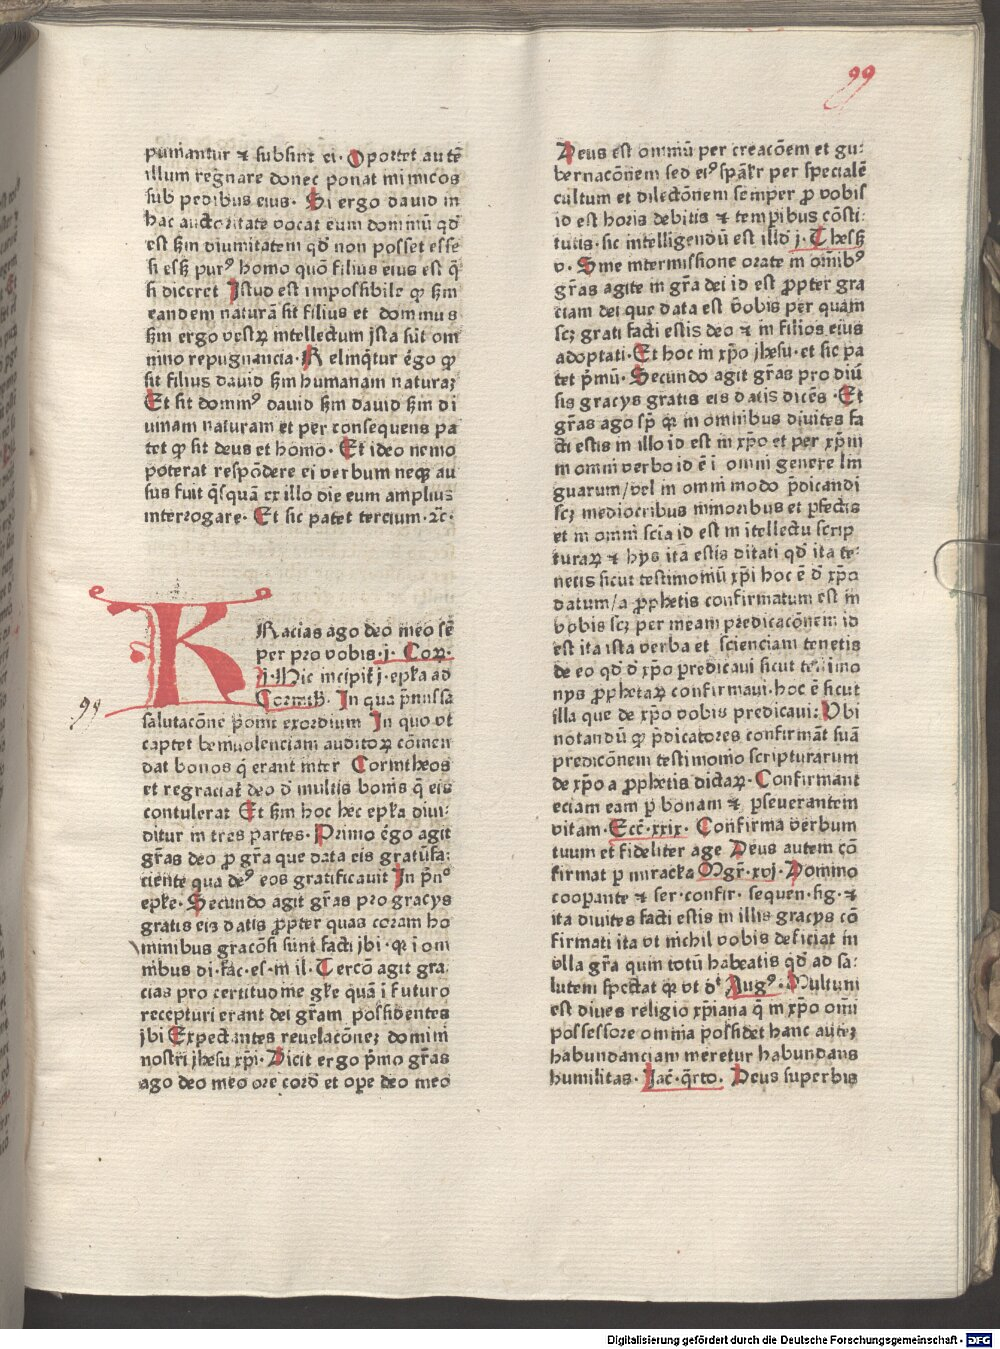 99
puniantur ⁊ subsint ei. Oportet autē
illum regnare donec ponat inimicos
sub pedibus eius. Si ergo dauid in
hac auctoritate vocat eum dominū qd̄
est ẜm diuinitatem qd̄ non posset esse
si esẜ purꝰ homo quō filius eius est q̄
si diceret Istud est impossibile ꝙ ẜm
eandem naturā sit filius et dominus
ẜm ergo vestꝝ intellectum ista sūt om
nino repugnancia. Relinq̄tur ēgo ꝙ
sit filius dauid ẜm humanam naturaꝫ
Et sit dominꝰ dauid ẜm dauid ẜm di
uinam naturam et per consequens pa
tet ꝙ sit deus et homo. Et ideo nemo
poterat respōdere ei verbum neqꝫ au
sus fuit q̄squā ex illo die eum amplius
interrogare. Et sic patet tercium.⁊c̄.
RRacias ago deo meo sē
per pro vobis.j. Coꝝ.
j. Hic incipit̄ j.epl̄a ad
Corinth. In qua p̄missa
99
salutacōne ponit exordium In quo vt
captet beniuolenciam auditoꝝ cōmen
dat bonos q̄ erant inter Corintheos
et regraciat̄ deo d̄ multis bonis q̄ eis
contulerat Et ẜm hoc hec epl̄a diui-
ditur in tres partes. Primo ēgo agit
gr̄as deo ꝓ gr̄a que data eis gratūfa-
ciente qua deꝰ eos gratificauit In p̄nꝰ
epl̄e. Secundo agit gr̄as pro gracys
gratis eis datis ꝓpter quas coram ho
minibus gracōsi sunt facti ibi. ꝙ i om
nibus di.fac.es.in il. Tercō agit gra-
cias pro certitudine gl̄e quā i futuro
recepturi erant dei gr̄am possidentes
ibi Expectantes reuelacōneꝫ domini
nostri jhesu xp̄i. Dicit ergo p̄mo gr̄as
ago deo meo ore cord̄ et ope deo meo
Deus est omniū per creacōem et gu-
bernacōnem sed eiꝰ sp̄al̄r per specialē
cultum et dilectōnem semper ꝓ vobis
id est horis debitis ⁊ tempibus cōsti-
tutis.sic intelligendū est illd̄ j. Thesẜ
v. Sine intermissione orate in om̄ibꝰ
gr̄as agite in gr̄a dei id est ꝓpter gra
ciam dei que data est v̄obis per quam
scꝫ grati facti estis deo ⁊ in filios eius
adoptati. Et hoc in xp̄o jhesu.et sic pa
tet p̄mū. Secundo agit gr̄as pro diu
sis gracys gratis eis datis dicēs. Et
gr̄as ago sp̄ ꝙ in omnibus diuites fa
cti estis in illo id est in xp̄o et per xp̄m
in omni verbo id ē i omni genere lin
guarum/vel in omni modo p̄dicandi
scꝫ mediocribus minoribus et pfectis
et in omni scīa id est in ītellectu scrip
turaꝝ ⁊ hys ita estis ditati qd̄ ita te-
netis sicut testimoniū xp̄i hoc ē d̄ xp̄o
datum/a ꝓphetis confirmatum est in
vobis scꝫ per meam predicacōnem id
est ita ista verba et scienciam tenetis
de eo qd̄ d̄ xp̄o predicaui sicut testimo
nys ꝓphetaꝝ confirmaui.hoc ē sicut
illa que de xp̄o vobis predicaui. Vbi
notandū ꝙ p̄dicatores confirmāt suā
predicōnem testimonio scripturarum
de xp̄o a ꝓphetis dictaꝝ. Confirmant
eciam eam p bonam ⁊ pseuerantem
vitam. Ecc̄.xxix. Confirma verbum
tuum et fideliter age Deus autem cō
firmat p miracl̄a Mgr̄.xvj. Domino
coopante ⁊ ser.confir.sequen.sig.⁊
ita diuites facti estis in illis gracys cō
firmati ita vt nichil vobis deficiat in
vlla gr̄a quin totū habeatis qd̄ ad sa-
lutem spectat ꝙ vt d̄t Augꝰ. Multum
est diues religio xp̄iana q̄ in xp̄o om̄i
possessore omnia possidet hanc auteꝫ
habundanciam meretur habundans
humilitas. Jac̄.q̄rto. Deus superbis
Digitalisierung gefördert durch die Deutsche Forschungsgemeinschaft - DFG